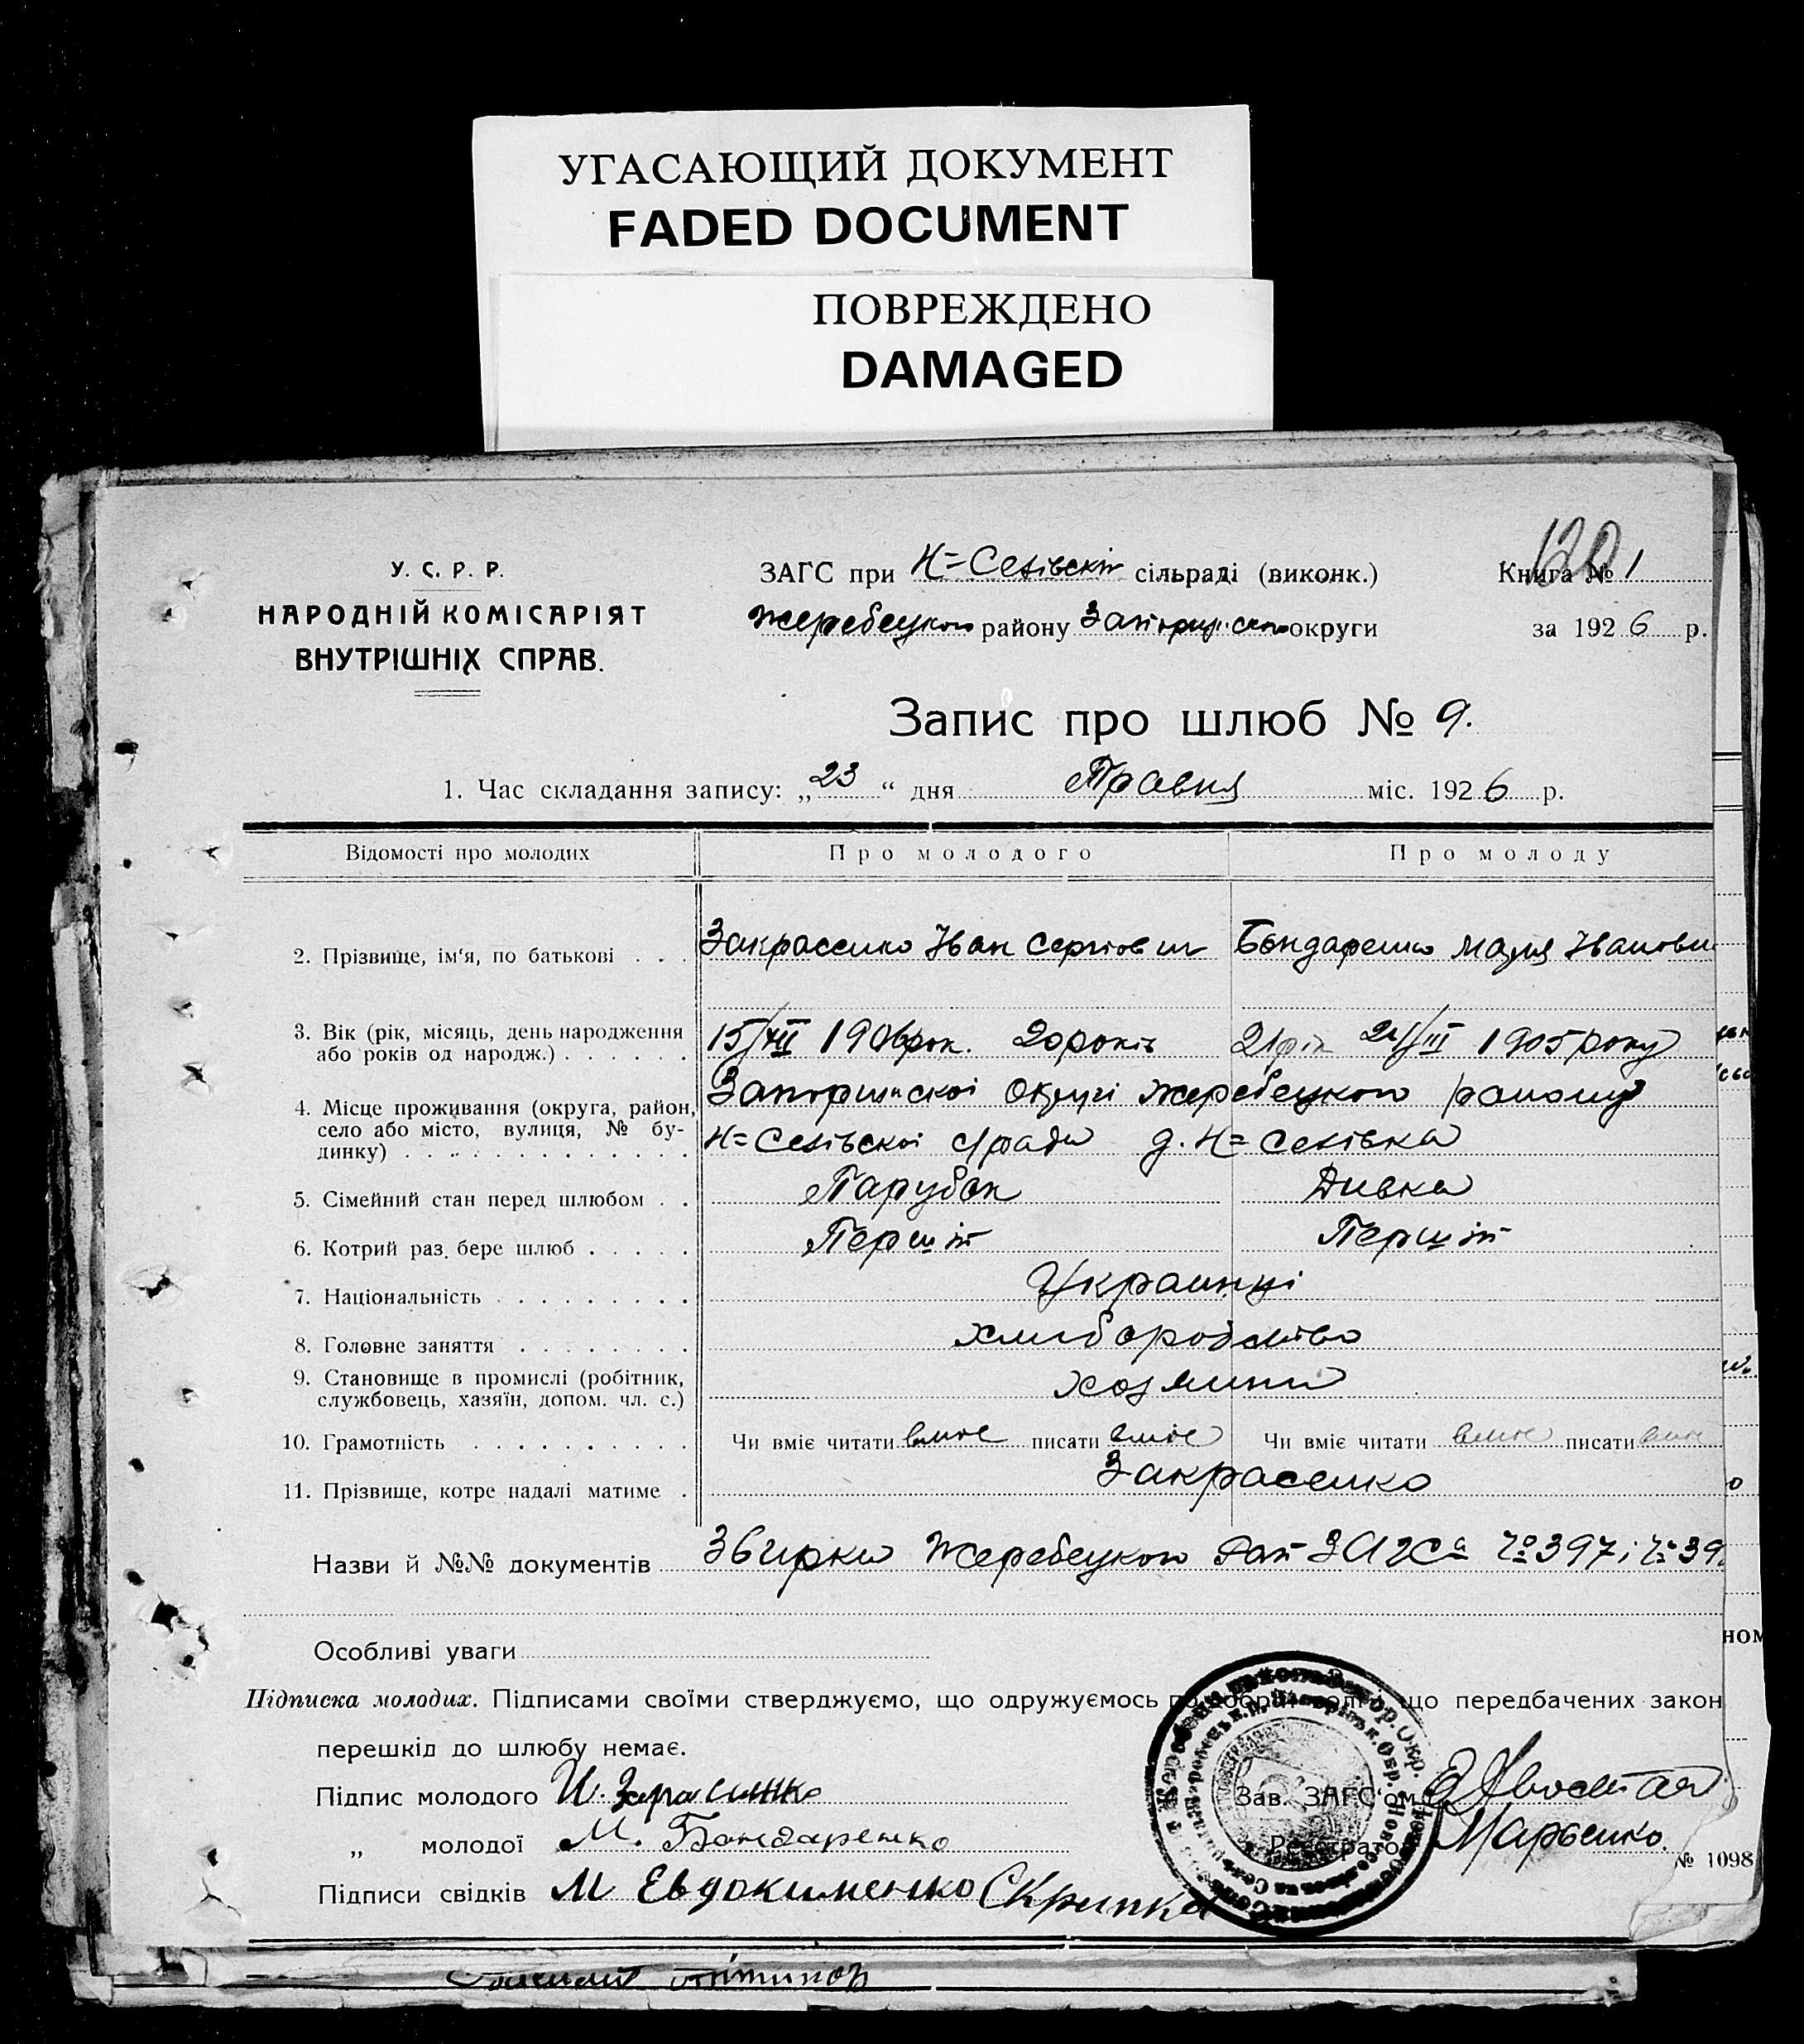 УГАСАЮЩИЙ ДОКУМЕНТ
FADED DOCUMENT
ПОВРЕЖДЕНО
DAMAGED
У. С. Р. Р.
НАРОДНІЙ КОМІСАРІЯТ
ВНУТРІШНІХ СПРАВ.
ЗАГС при Н=Селівскій сільраді (виконк.)
Жеребецкого району округи
Книга № 1
за 1926 р.
Запис про шлюб № 9.
1. Час складання запису: „23“ дня Травня міс. 1926 р.
Відомості про молодих Про молодого Про молоду
2. Прізвище, ім'я, по батькові . . . Закрасенко Іван Сергіович Бондаренко Марія
3. Вік (рік, місяць, день народження
або років од народж.) . . . . . . 20 років 21 рік 1905 року
4. Місце проживання (округа, район, Запоришскоі Округі Жеребецкого району
село або місто, вулиця, № бу- Н=Селівскоі с/ради д. Н=Селівка
динку) . . . . . . . . . . . . .
5. Сімейний стан перед шлюбом . . Парубок Дивка
6. Котрий раз бере шлюб . . . . . Перший Перший
7. Національність . . . . . . . . . Украинці
8. Головне заняття . . . . . . . . хлиборобство
9. Становище в промислі (робітник,
службовець, хазяїн, допом. чл. с.)
10. Грамотність . . . . . . . . . . Чи вміє читати вміє писати вміє Чи вміє читати вміє писати вміє
11. Прізвище, котре надалі матиме . Закрасенко
Назви й №№ документів Жеребецкого Рай ЗАГСа № 397 і № 39
Особливі уваги
Підписка молодих. Підписами своїми стверджуємо, що одружуємось по добрій волі що передбачених закон
перешкід до шлюбу немає.
Підпис молодого И.
Зав. ЗАГС'ом
„ молодої М. Бондаренко
Реєстратор Марченко.
№ 1098
Підписи свідків М Евдокименко Скрипка